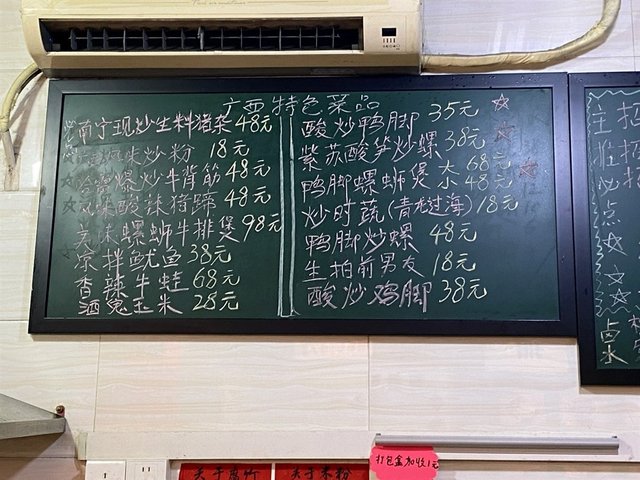 广西特色菜品
南宁现炒生料猪杂48元
炒粉 18元
爆炒牛背筋48元
酸辣猪蹄 48元
美味螺蛳牛排煲98元
凉拌鱿鱼38元
香辣牛蛙 68元
酒鬼玉米 28元
酸炒鸭脚 35元
紫苏酸笋炒螺38元
鸭脚螺蛳煲 大68元
小48元
炒时蔬(青龙过海)18元
鸭脚炒螺 48元
生拍前男友 18元
酸炒鸡脚 38元
必点
卤水
打包盒加收1元
关于腐竹
关于米粉